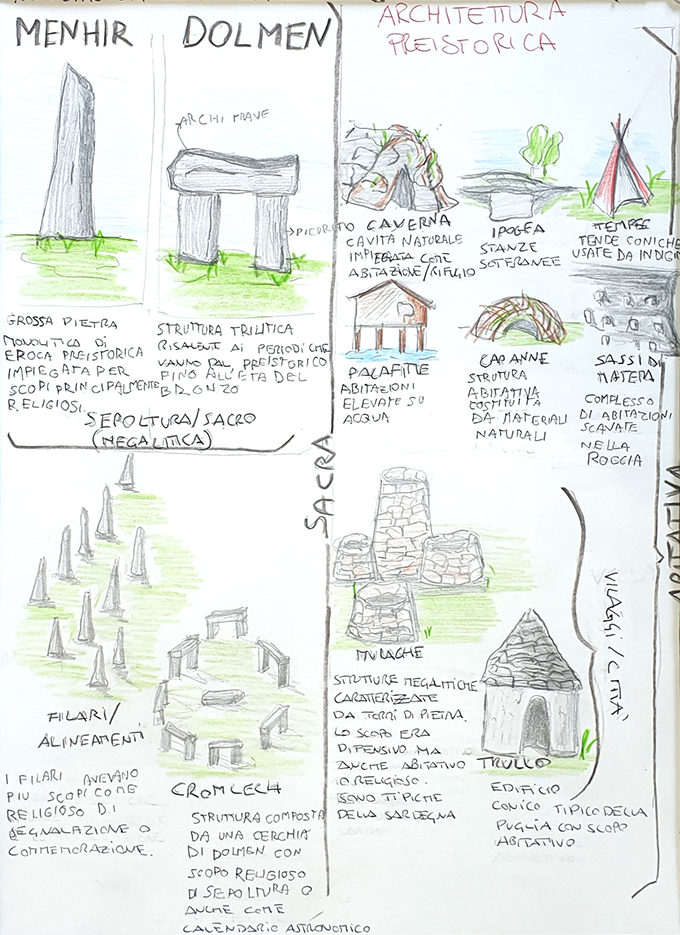 ARCHITETTURA
PREISTORICA
MENHIR
DOLMEN
ARCHITRAVE
PIEDRITO
GROSSA PIETRA
MONOLITICA DI
EPOCA PREISTORICA
IMPIEGATA PER
SCOPI PRINCIPALMENTE
RELIGIOSI.
STRUTTURA TRILITICA
RISALENTE AI PERIODI CHE
VANNO DAL PREISTORICO
FINO ALL'ETÀ DEL
BRONZO
SEPOLTURA/SACRO
(MEGALITICA)
SACRA
FILARI/
ALINEAMENTI
I FILARI AVEVANO
PIU SCOPI COME
RELIGIOSO DI
SEGNALAZIONE O
COMMEMORAZIONE.
CROMLECH
STRUTTURA COMPOSTA
DA UNA CERCHIA
DI DOLMEN CON
SCOPO RELIGIOSO
DI SEPOLTURA O
ANCHE COME
CALENDARIO ASTRONOMICO
CAVERNA
CAVITÀ NATURALE
IMPIEGATA COME
ABITAZIONE/RIFUGIO
IPOGEA
STANZE
SOTERANEE
TEMPEE
TENDE CONICHE
USATE DA INDIGI
PALAFITTE
ABITAZIONI
ELEVATE SU
ACQUA
CAPANNE
STRUTURA
ABITATIVA
COSTITUITA
DA MATERIALI
NATURALI
SASSI DI
MATERA
COMPLESSO
DI ABITAZIONI
SCAVATE
NELLA
ROCCIA
ABITATIVA
NURAGHE
STRUTTURE MEGALITICHE
CARATTERIZZATE
DA TORRI DI PIETRA.
LO SCOPO ERA
DIFENSIVO MA
ANCHE ABITATIVO
O RELIGIOSO.
SONO TIPICHE
DELLA SARDEGNA
TRULLO
EDIFICIO
CONICO TIPICO DELLA
PUGLIA CON SCOPO
ABITATIVO
VILAGGI/CITTÀ